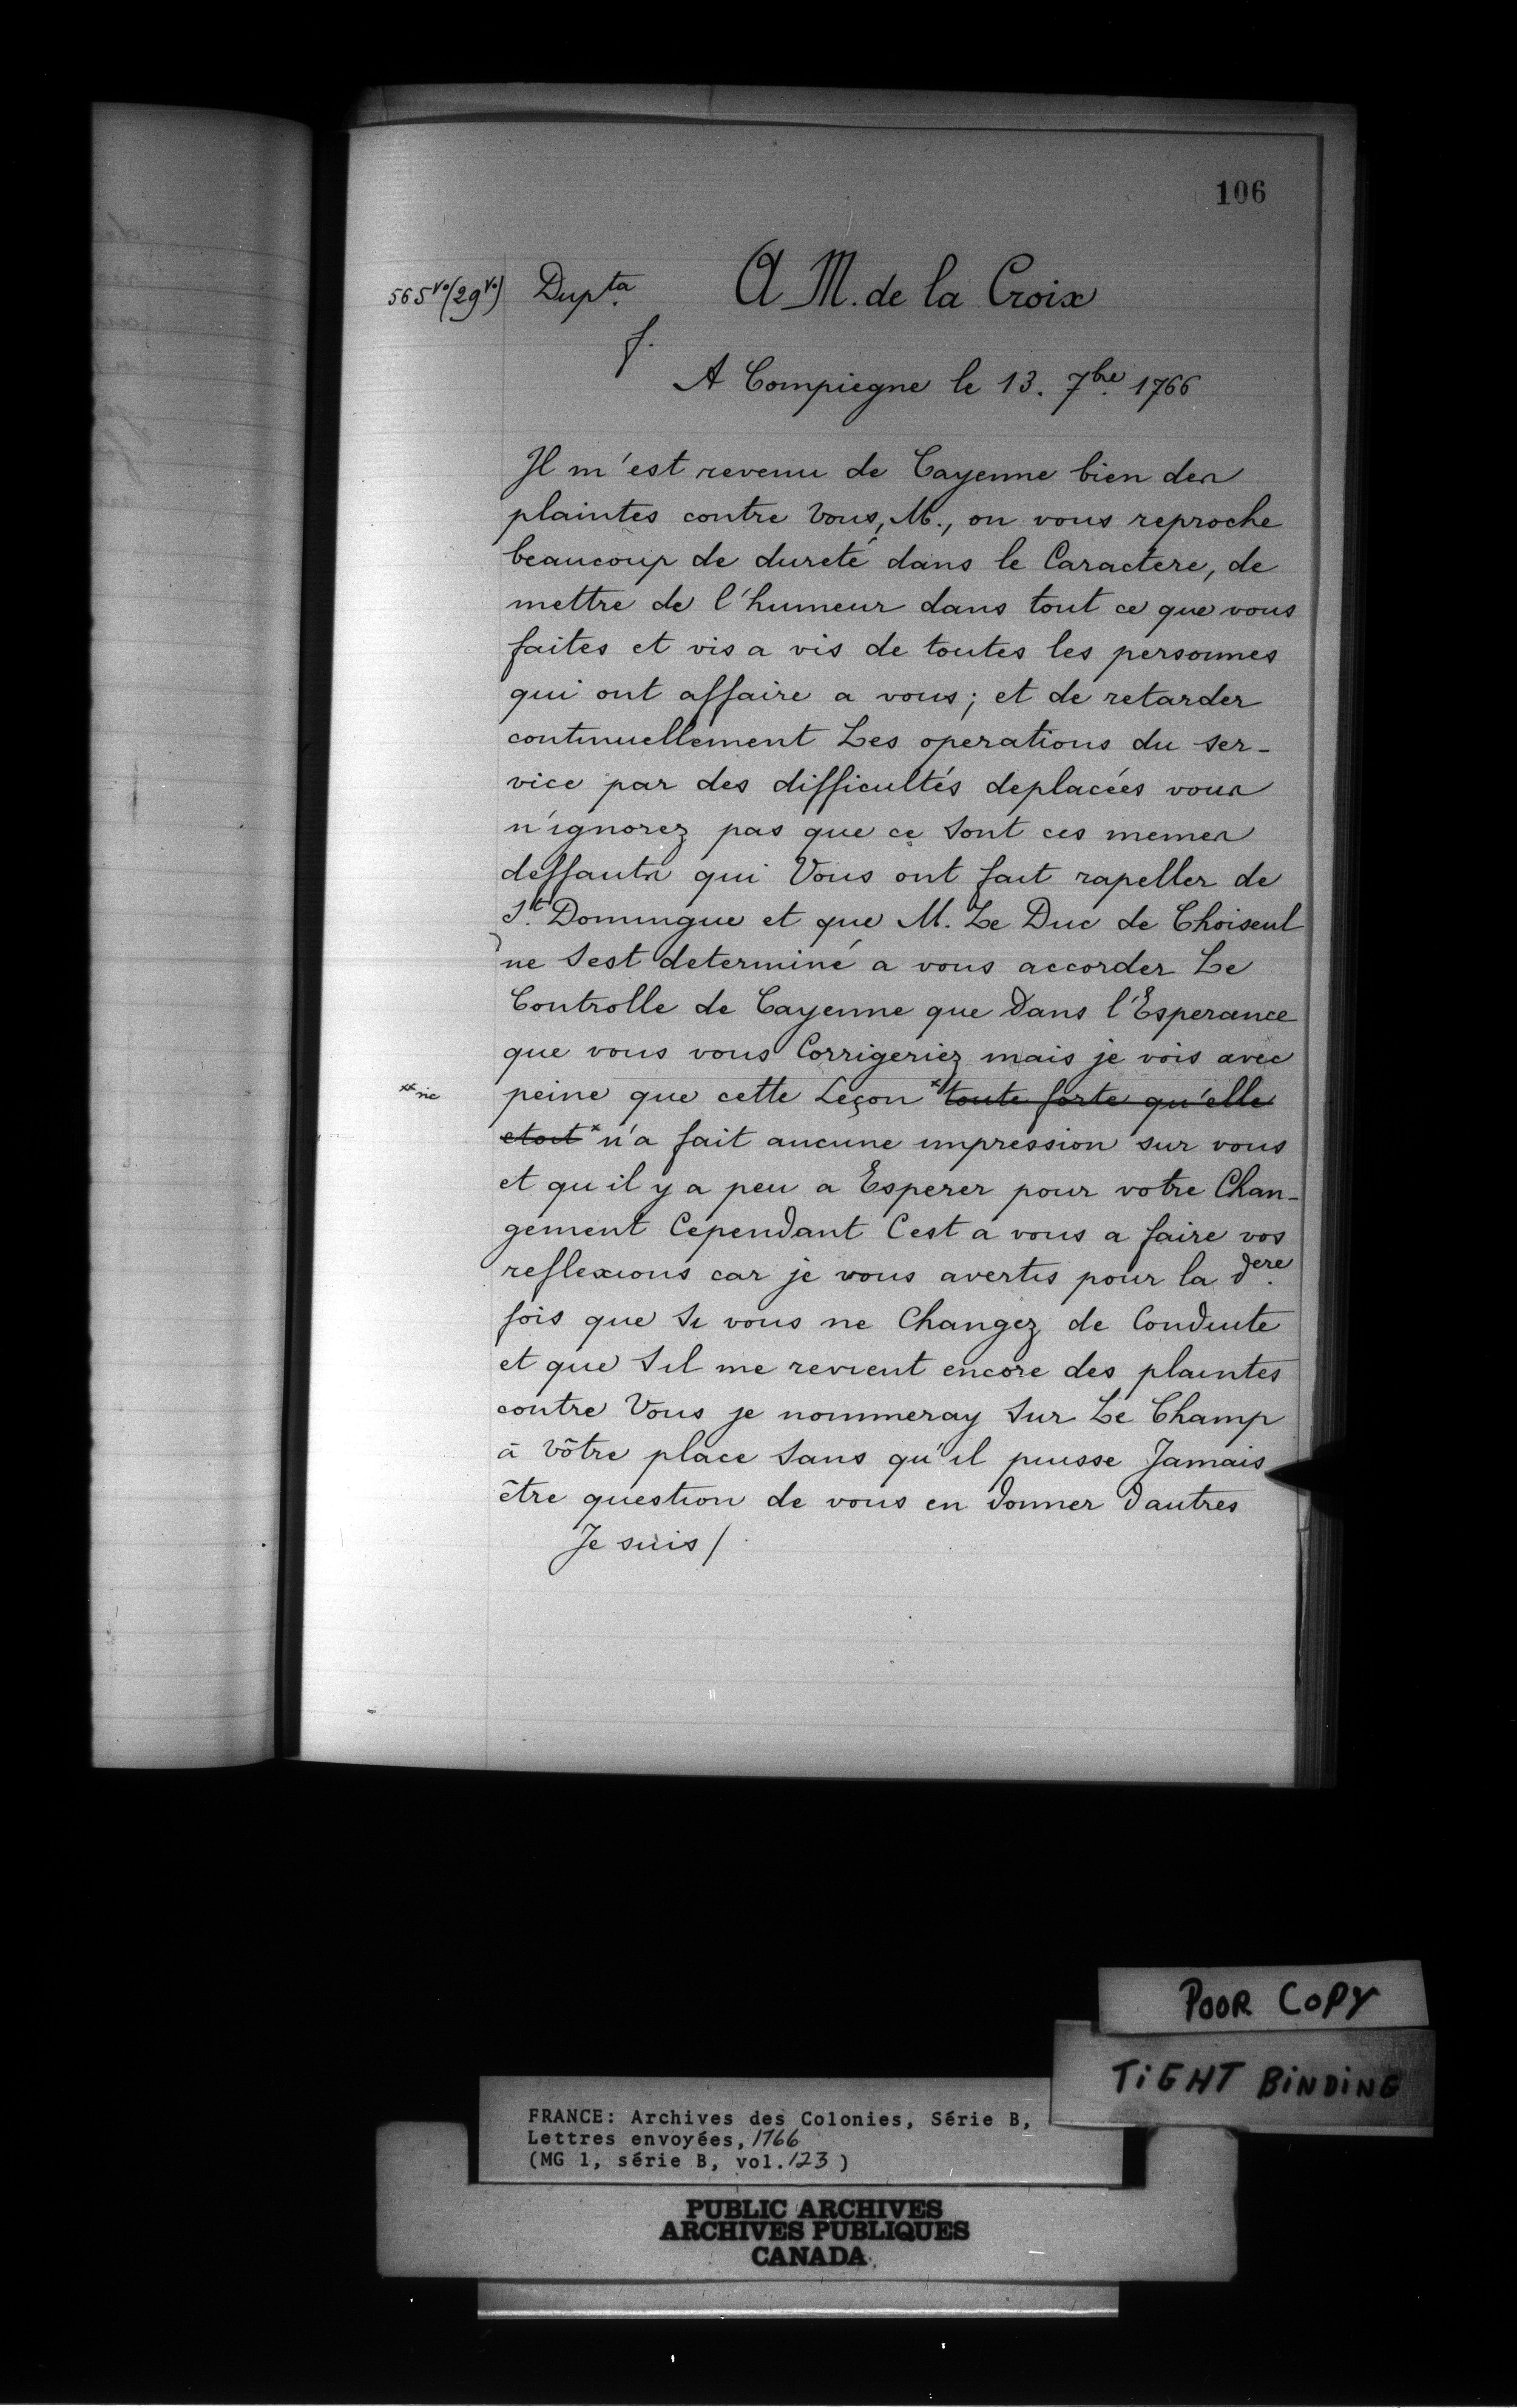 106
565 vo (29 vo) Dupta. A M. de la Croix
f.
A Compiegne le 13. 7bre. 1766
Il m'est revenu de Cayenne bien des
plaintes contre Vous, M., on vous reproche
beaucoup de dureté dans le Caractere, de
mettre de l'humeur dans tout ce que vous
faites et vis a vis de toutes les personnes
qui ont affaire a vous; et de retarder
continuellement Les operations du ser-
vice par des difficultés deplacées vous
n'ignorez pas que ce sont ces memes
deffauts qui Vous ont fait rapeller de
St. Domingue et que M. Le Duc de Choiseul
ne sest determiné a vous accorder Le
Controlle de Cayenne que dans l'Esperance
que vous vous Corrigeriez mais je vois avec
xx sic peine que cette Leçon x toute forte qu'elle
etoit x n'a fait aucune impression sur vous
et qu il y a peu a Esperer pour votre Chan-
gement Cependant C'est a vous a faire vos
reflexions car je vous avertis pour la dere.
fois que si vous ne Changez de Conduite
et que sil me revient encore des plaintes
contre Vous je nommeray sur Le Champ
à vôtre place sans qu'il puisse Jamais
être question de vous en donner dautres
Je suis /
POOR COPY
TIGHT BINDING
FRANCE: Archives des Colonies, Série B,
Lettres envoyées, 1766
(MG 1, série B, vol. 123)
PUBLIC ARCHIVES
ARCHIVES PUBLIQUES
CANADA